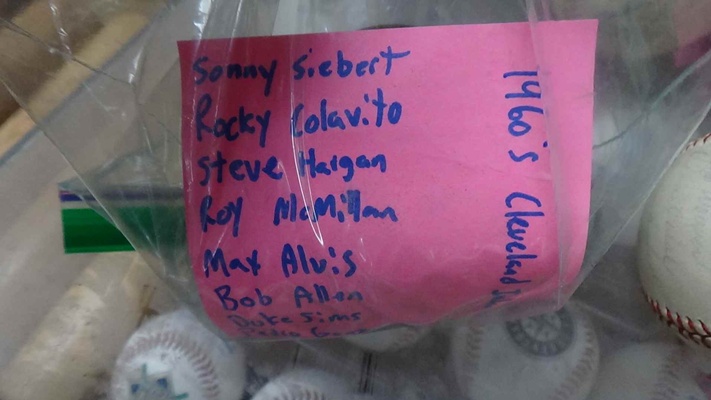 Sonny Siebert
Rocky Colavito
Steve Hargan
Roy McMillan
Max Alvis
Bob Allen
Duke Sims
1960's Cleveland